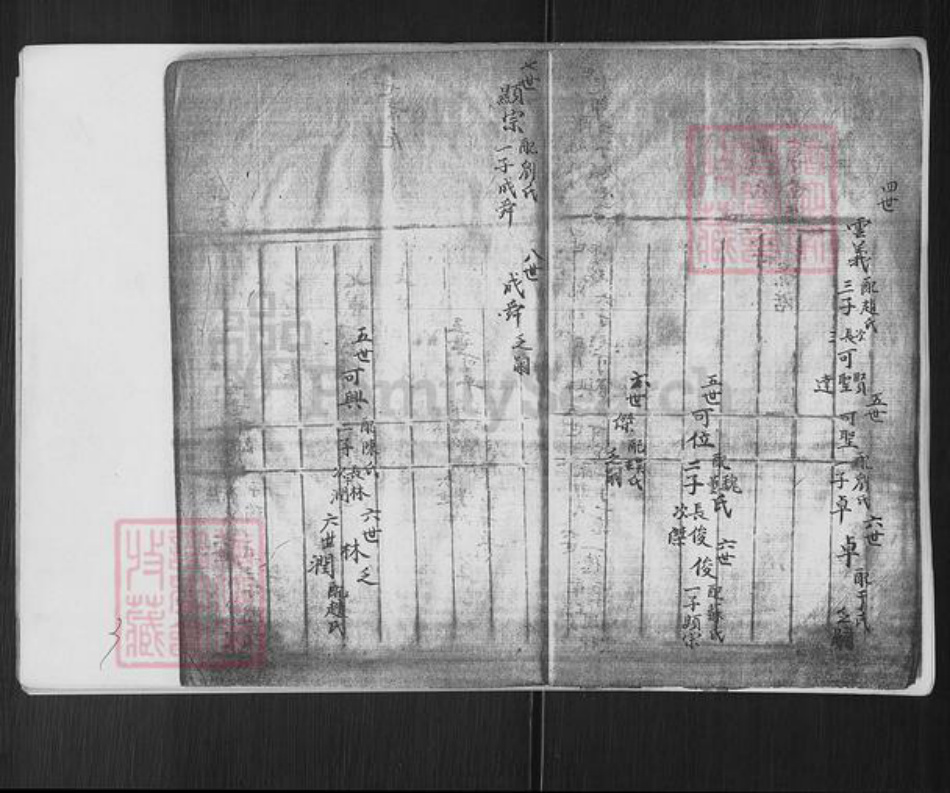 四世
雲義 配趙氏
三子 長可聖 次賢 三達
五世
可聖 配劉氏
一子卓
六世
卓 配于氏
乏嗣
五世
可位 配魏氏
二子 長俊 次傑
六世
俊 配蘇氏
一子顯宗
六世
傑 配氏
乏嗣
七世
顯宗 配劉氏
一子成舜
八世
成舜 乏嗣
五世
可興 配陳氏
二子 長林 次潤
六世
林 乏
六世
潤 配趙氏
FamilySearch